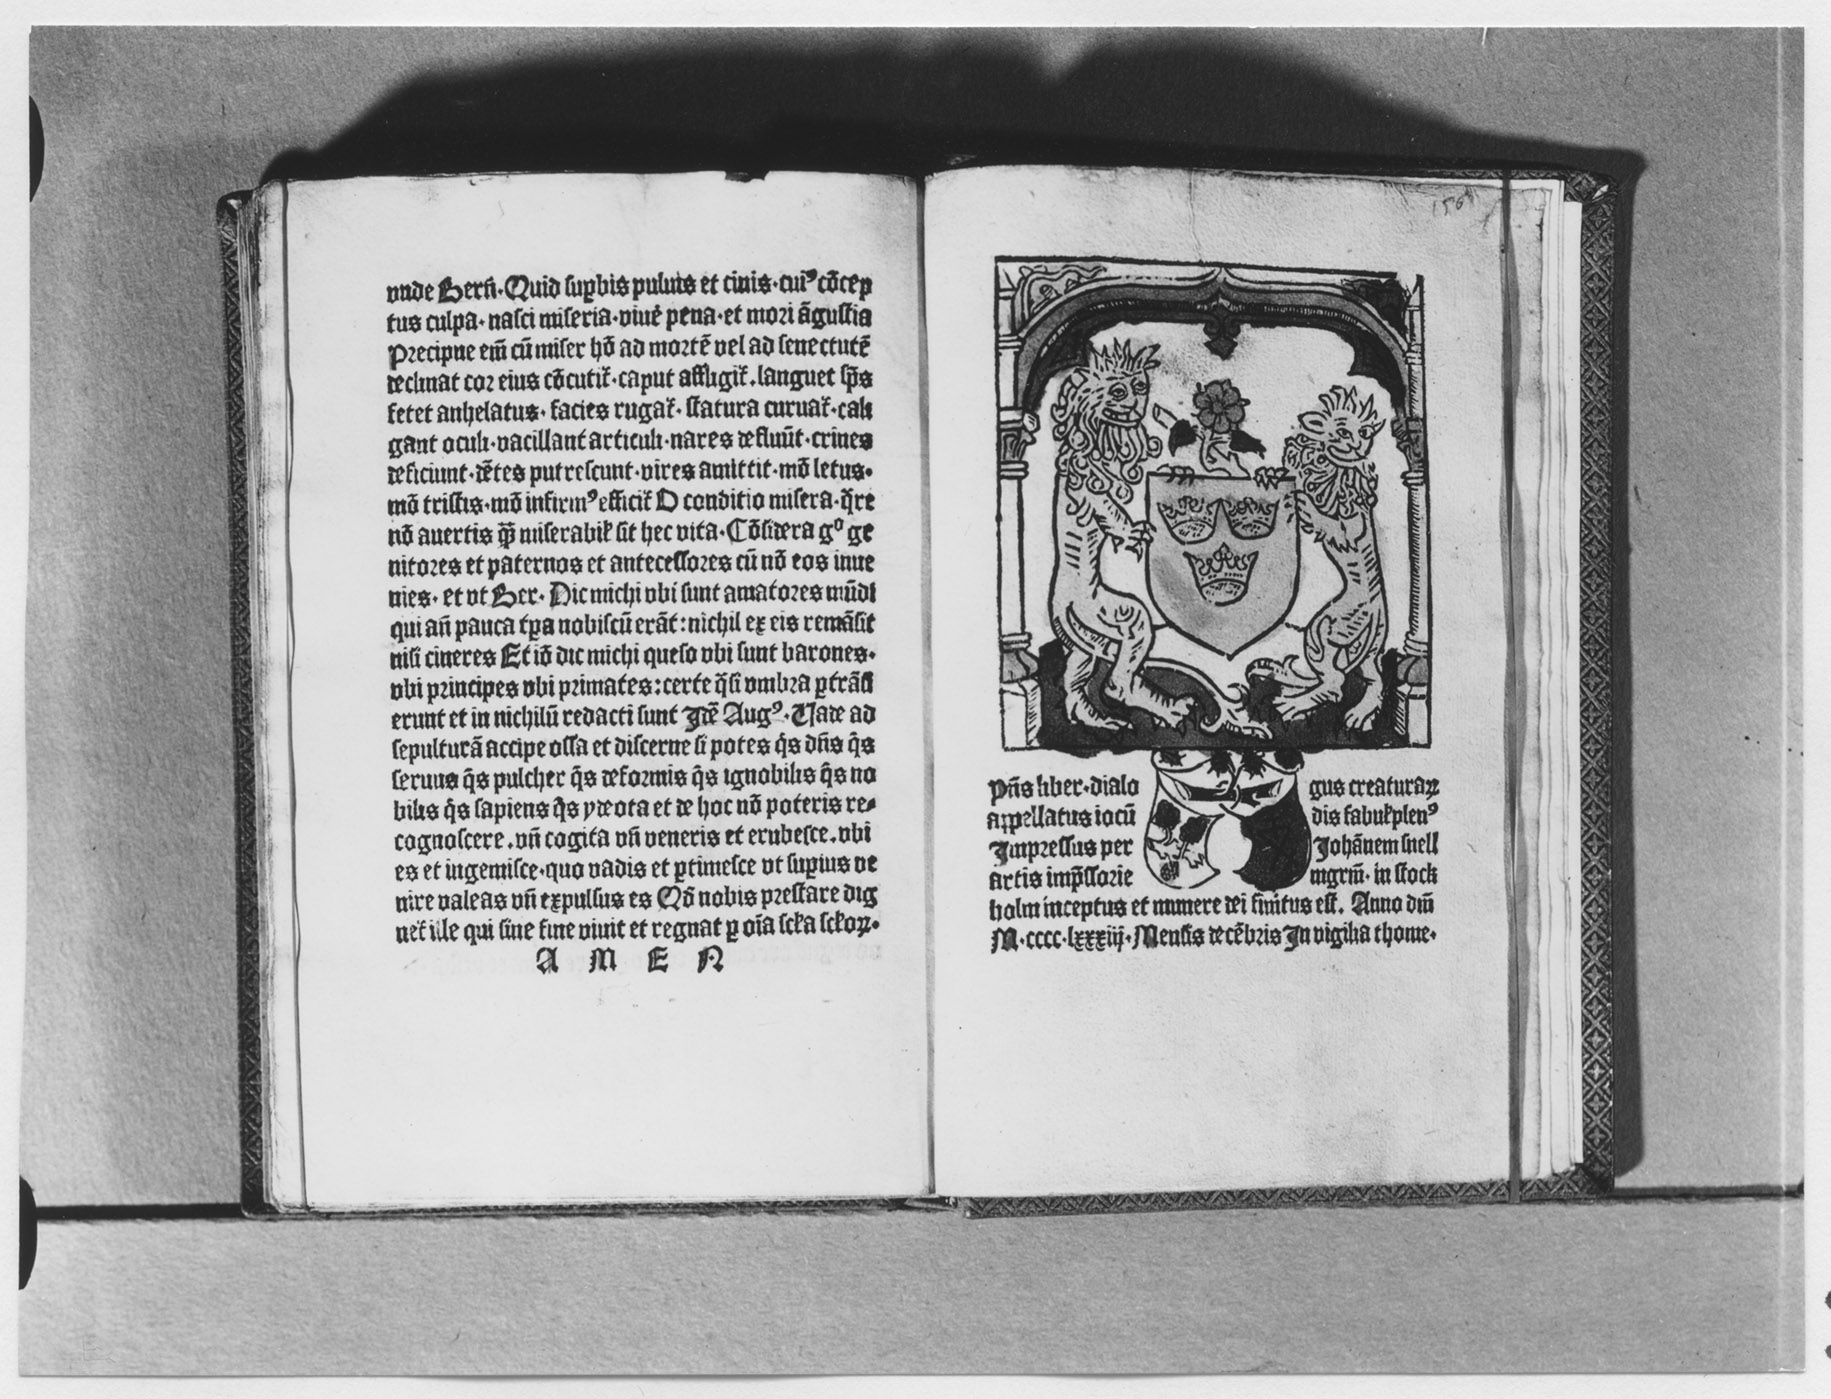 vnde Berñ. Quid suꝑbis puluis et cinis. cuiꝰ cōcep
tus culpa. nasci miseria. viuẽ pena. et mori āgustia
Precipue em̄ cū miser hō ad mortē vel ad senectutē
declinat cor eius cōcutit̃. caput affligit̃. languet sp̄s
fetet anhelatus. facies rugat̃. statura curuat̃. cali
gant oculi. vacillant articuli. nares defluūt. crines
deficiunt. dētes putrescunt. vires amittit. mō letus.
mō tristis. mō infirmꝰ efficit̃ O conditio misera. q̄re
nō auertis q̄ꝫ miserabil̃ sit hec vita. Cōsidera gᵒ ge
nitores et paternos et antecessores cū nō eos inue
nies. et vt Ber. Dic michi vbi sunt amatores mūdi
qui añ pauca tꝑa nobiscū erāt: nichil ex eis remāsit
nisi cineres Et iō dic michi queso vbi sunt barones.
vbi principes vbi primates: certe q̄si vmbra ꝑtrāsi
erunt et in nichilū redacti sunt Jdē Augꝰ. Vade ad
sepulturā accipe ossa et discerne si potes q̇s dn̄s q̇s
seruus q̇s pulcher q̇s deformis q̇s ignobilis q̇s no
bilis q̇s sapiens q̇s ydeota et de hoc nō poteris re⸗
cognoscere. vñ cogita vñ veneris et erubesce. vbi
es et ingemisce. quo vadis et ꝑtimesce vt suꝑius ve
nire valeas vñ expulsus es Qd̄ nobis prestare dig
net̃ ille qui sine fine viuit et regnat ꝑ oīa sc̄la sc̄loꝝ.
A M E N
156
Pn̄s liber. dialo gus creaturaꝝ
appellatus iocū dis fabul̃ plenꝰ
Jmpressus per Johānem snell
artis imp̄ssorie mgrm̄. in stock
holm inceptus et munere dei finitus est. Anno dm̄
M. cccc. lxxxiij. Mensis decēbris Jn vigilia thome.